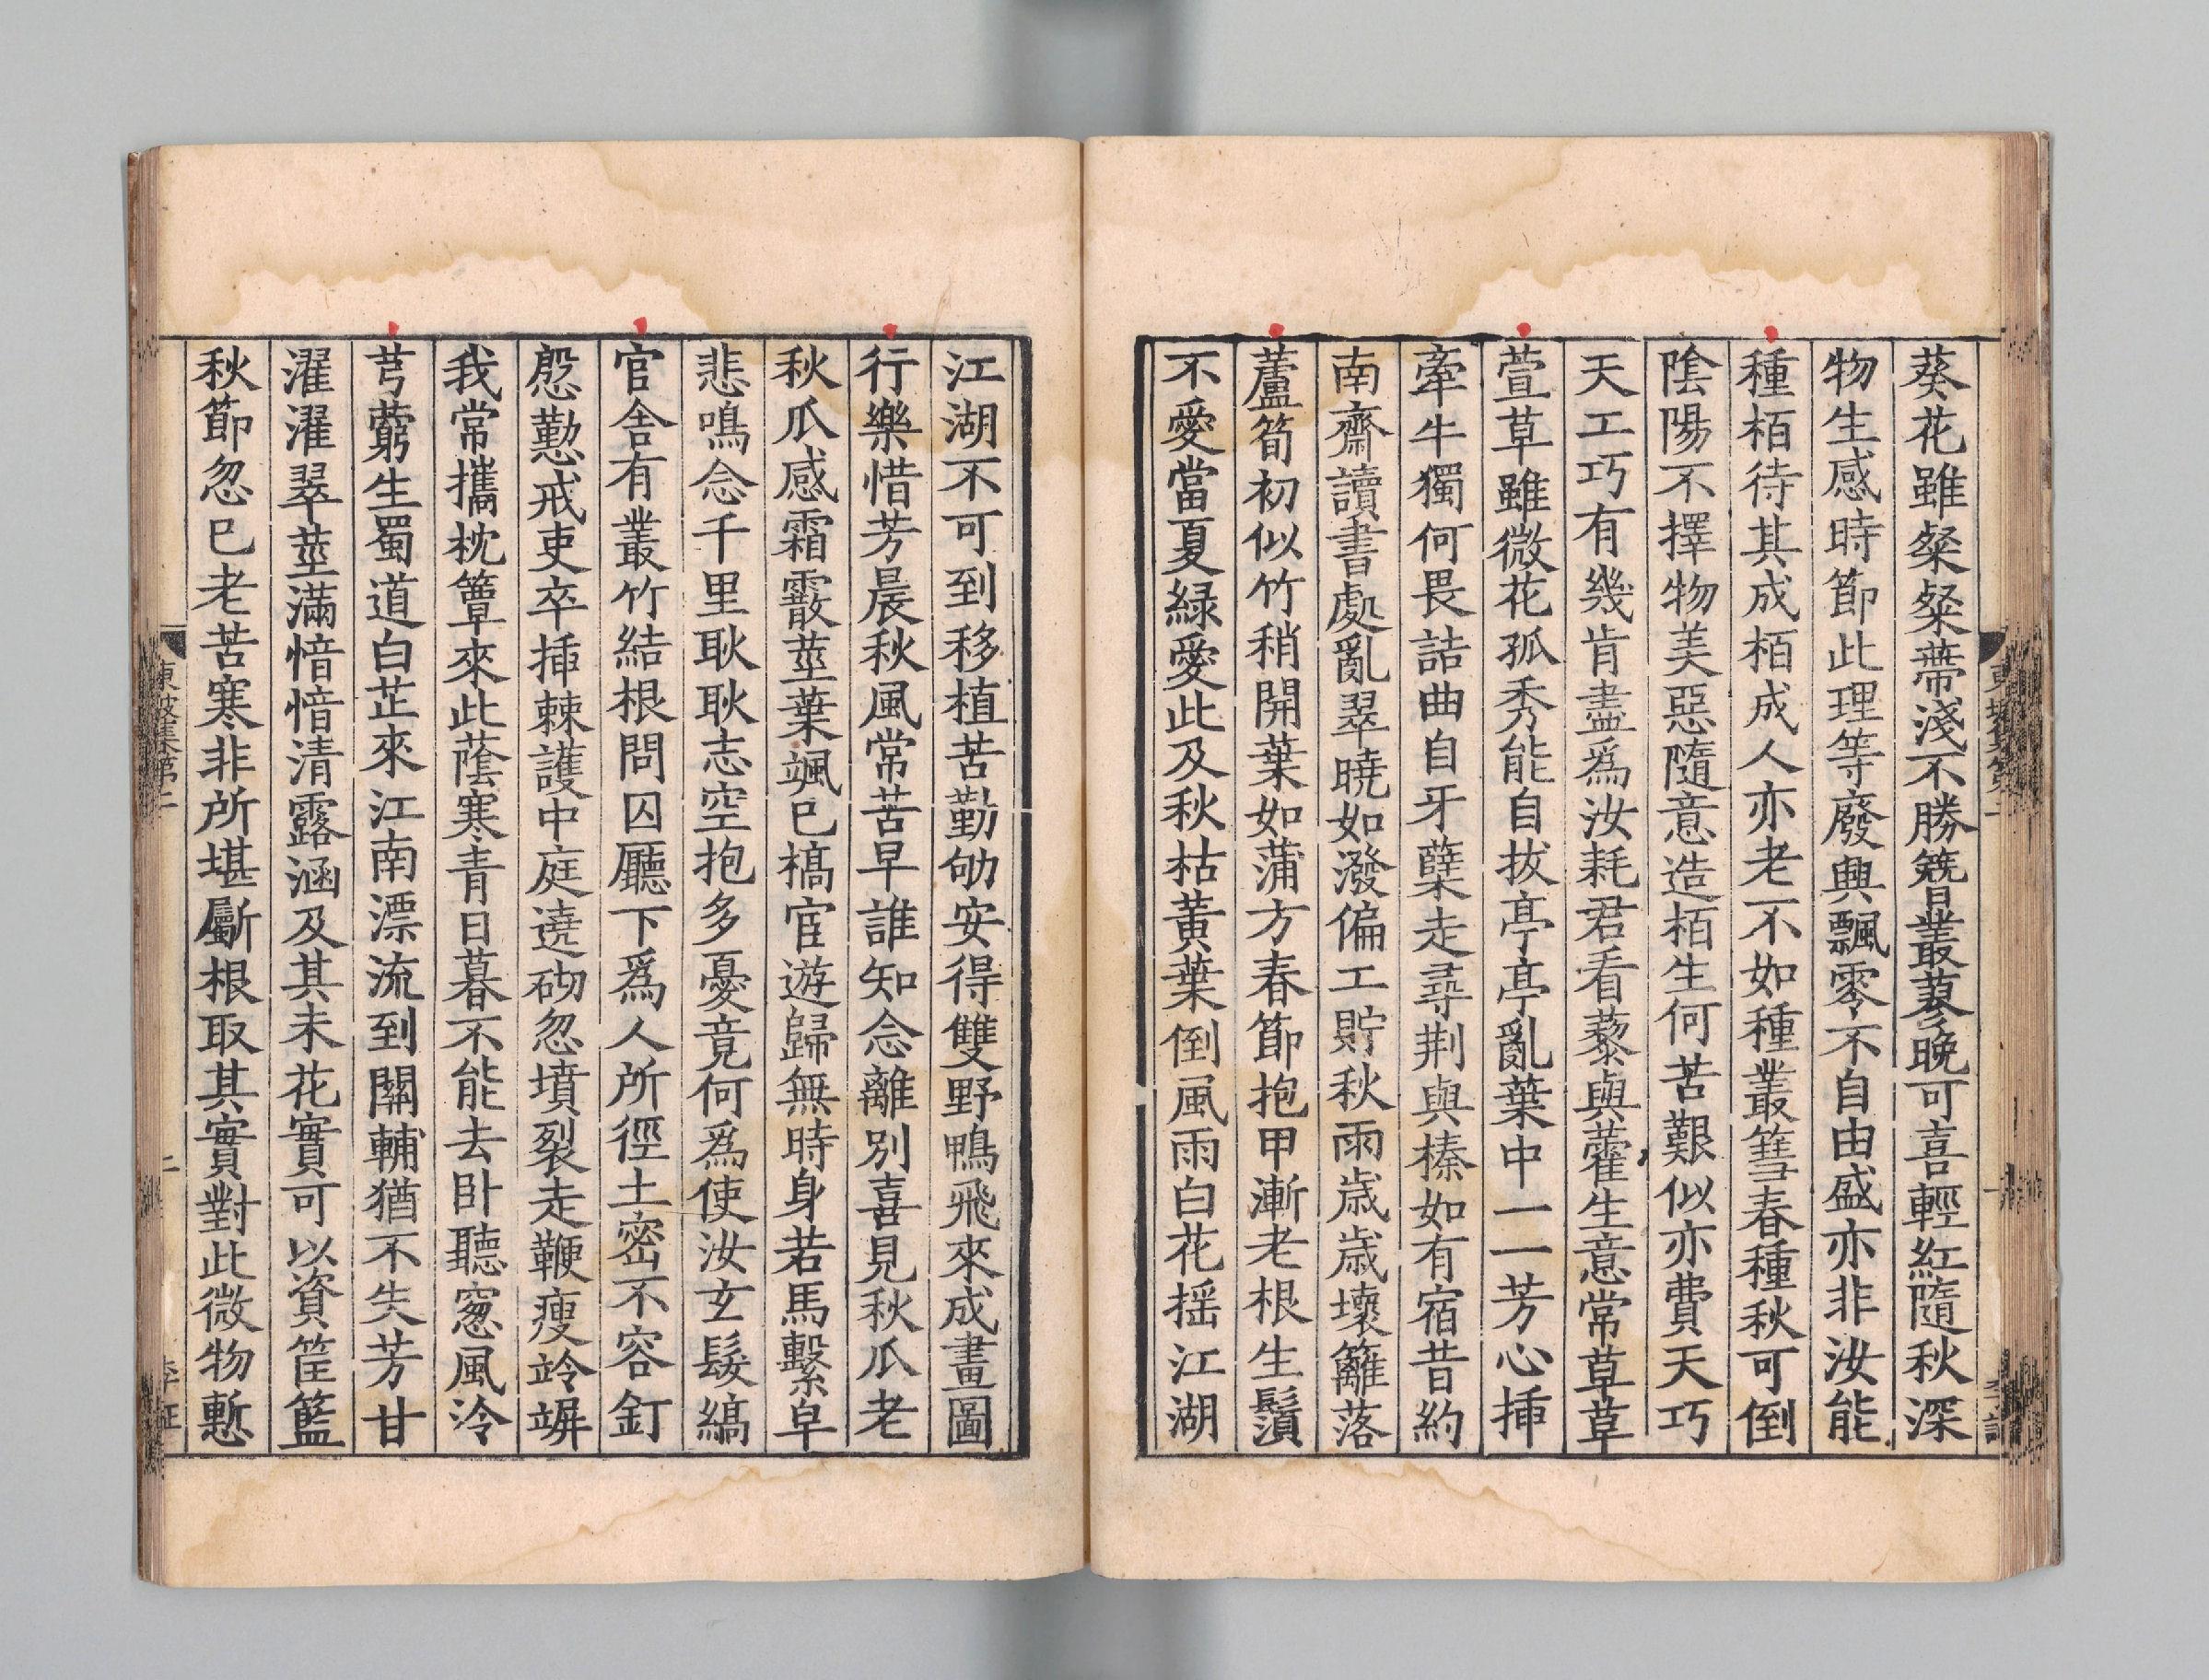 葵花雖粲粲蔕淺不勝簪叢蓼晚可喜輕紅隨秋深
物生感時節此理等廢興飄零不自由盛亦非汝能
種栢待其成栢成人亦老不如種叢篲春種秋可倒
陰陽不擇物美惡隨意造栢生何苦艱似亦費天巧
天工巧有幾肯盡爲汝耗君看藜與藿生意常草草
萱草雖微花孤秀能自拔亭亭亂葉中一一芳心揷
牽牛獨何畏詰曲自牙蘖走尋荆與榛如有宿昔約
南齋讀書處亂翠曉如潑偏工貯秋雨歲歲壞籬落
蘆筍初似竹稍開葉如蒲方春節抱甲漸老根生鬚
不愛當夏綠愛此及秋枯黃葉倒風雨白花搖江湖
江湖不可到移植苦勤劬安得雙野鴨飛來成畫圖
行樂惜芳晨秋風常苦早誰知念離別喜見秋瓜老
秋瓜感霜霰莖葉颯已槁宦遊歸無時身若馬繫皁
悲鳴念千里耿耿志空抱多憂竟何爲使汝玄髮縞
官舍有叢竹結根問囚廳下爲人所徑土密不容釘
慇懃戒吏卒揷棘護中庭遶砌忽墳裂走鞭瘦竛竮
我常攜枕簟來此蔭寒青日暮不能去卧聽窻風泠
芎藭生蜀道白芷來江南漂流到關輔猶不失芳甘
濯濯翠莖滿愔愔清露涵及其未花實可以資筐籃
秋節忽已老苦寒非所堪斸根取其實對此微物慙
東坡集第二
二